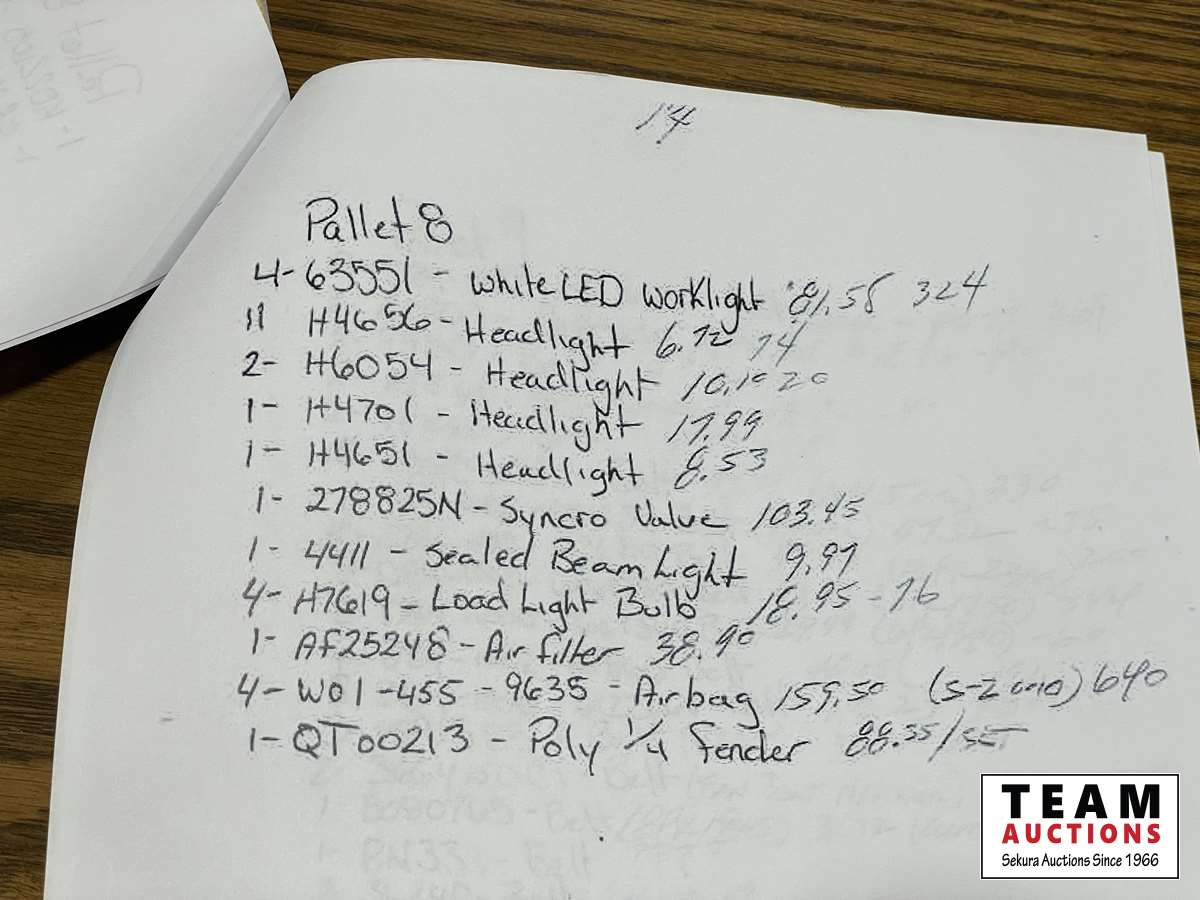 Pallet
14
Pallet 8
4- 63551 - White LED worklight 81.55 324
11 H4656 - Headlight 6.72 74
2- H6054 - Headlight 10.10 20
1- H4701 - Headlight 17.99
1- H4651 - Headlight 8.53
1- 278825N - Syncro Valve 103.45
1- 4411 - Sealed Beam Light 9.97
4- H7619 - Load Light Bulb 18.95 - 76
1- AF25248 - Air filter 38.90
4- W01-455-9635 - Airbag 159.50 640
1- QT00213 - Poly 1/4 fender 88.35/SET
TEAM
AUCTIONS
Sekura Auctions Since 1966